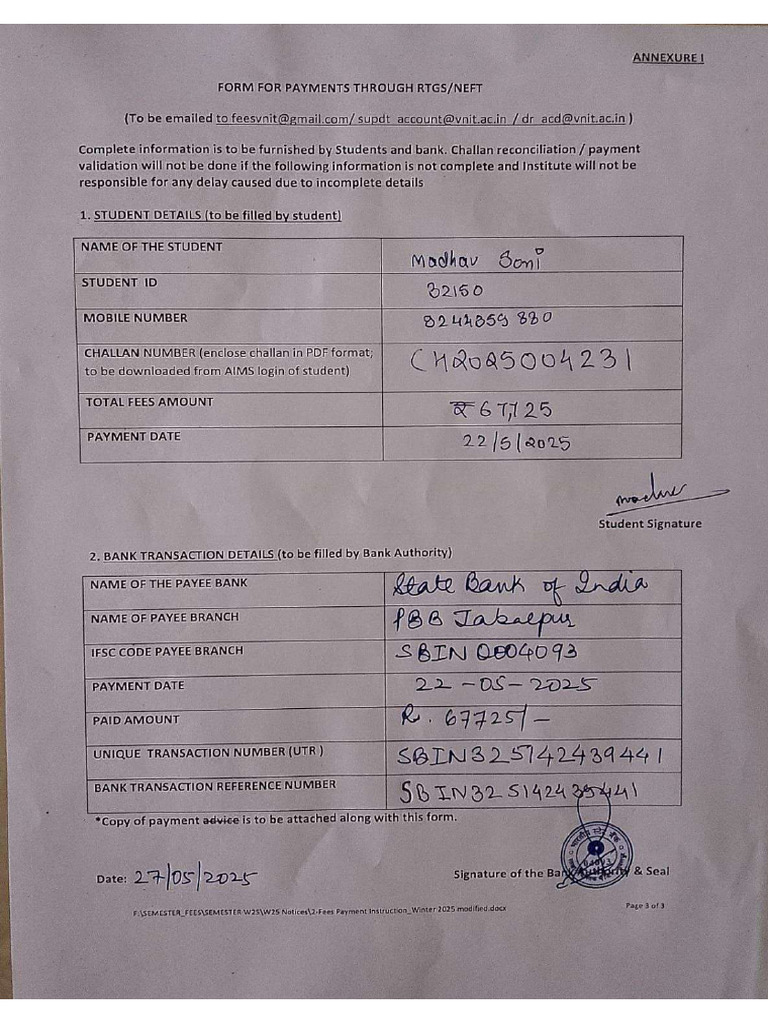 ANNEXURE I
FORM FOR PAYMENTS THROUGH RTGS/NEFT
(To be emailed to feesvnit@gmail.com/ supdt_account@vnit.ac.in / dr_acd@vnit.ac.in )
Complete information is to be furnished by Students and bank. Challan reconciliation / payment
validation will not be done if the following information is not complete and Institute will not be
responsible for any delay caused due to incomplete details
1. STUDENT DETAILS (to be filled by student)
NAME OF THE STUDENT Madhav Soni
STUDENT ID 32150
MOBILE NUMBER 8244859880
CHALLAN NUMBER (enclose challan in PDF format; CH2025004231
to be downloaded from AIMS login of student)
TOTAL FEES AMOUNT ₹67,725
PAYMENT DATE 22/5/2025
Student Signature
2. BANK TRANSACTION DETAILS (to be filled by Bank Authority)
NAME OF THE PAYEE BANK State Bank of India
NAME OF PAYEE BRANCH PBB Jabalpur
IFSC CODE PAYEE BRANCH SBIN0004093
PAYMENT DATE 22-05-2025
PAID AMOUNT R. 67725/-
UNIQUE TRANSACTION NUMBER (UTR ) SBIN325142439441
BANK TRANSACTION REFERENCE NUMBER SBIN325142439441
*Copy of payment advice is to be attached along with this form.
Date: 27/05/2025
Signature of the Bank Authority & Seal
F:\SEMESTER_FEES\SEMESTER W25\W25 Notices\2-Fees Payment Instruction_Winter 2025 modified.docx
Page 3 of 3